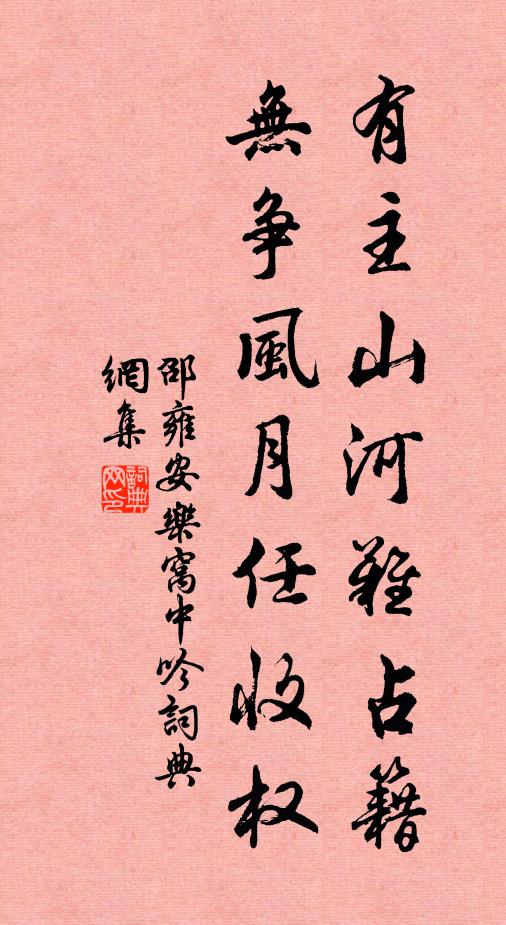 有主山河難占籍
無爭風月任收权
邵雍安樂窩中吟詞典
網集
詞典
网印